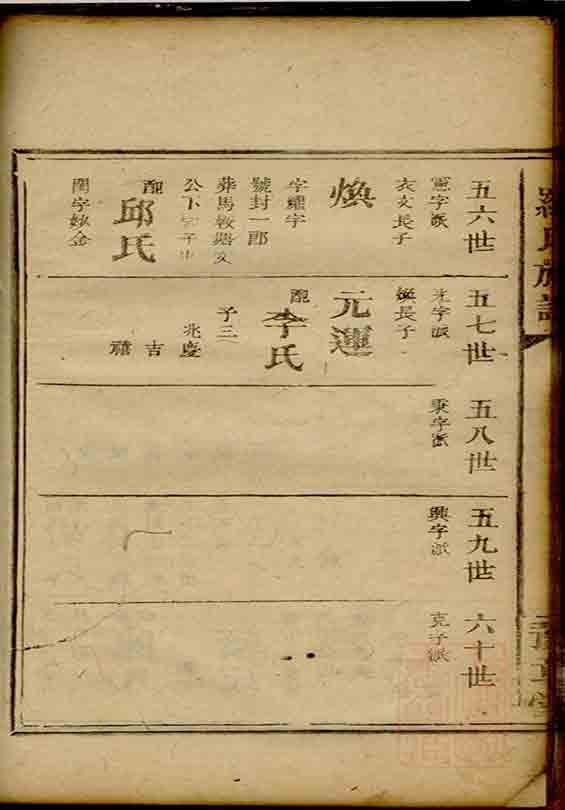 羅氏族譜
五六世
憲字派
衣文長子
煥
字耀宇
號封一郎
葬馬敦路文
公下
配
邱氏
閨字妙金
五七世
元字派
煥長子
元運
配
李氏
子三
兆慶
吉
禧
五八世
秉字派
五九世
興字派
六十世
克字派
豫章堂